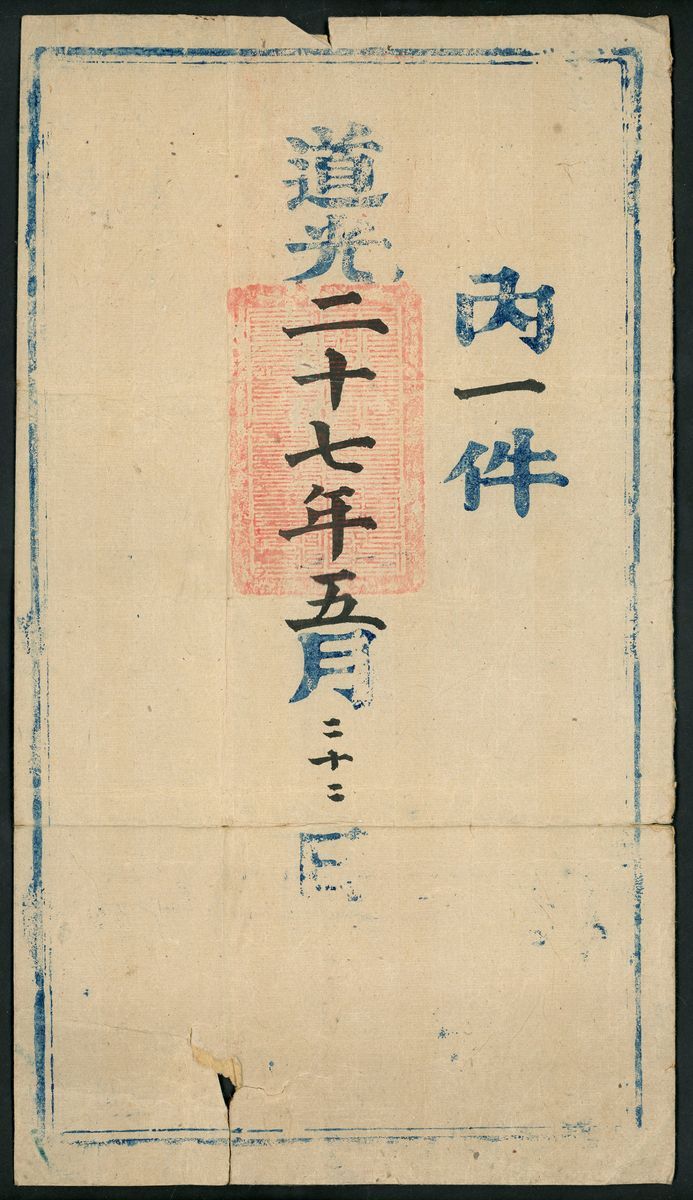 內一件
道光二十七年五月二十二日